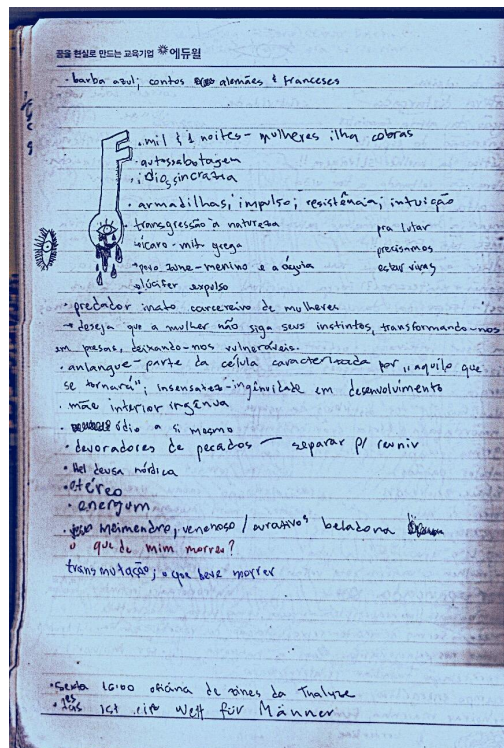 꿈을 현실로 만드는 교육기업 에듀윌
· barba azul; contos alemães & franceses
· mil & 1 noites - mulheres ilha cobras
· autossabotagem
· idiossincrazia
· armadilhas; impulso; resistência; intuição
· transgressão à natureza
pra lutar
ícaro - mit. grega
precisamos
povo Zune - menino e a águia
estar vivas
lúcifer expulso
· predador inato carcereiro de mulheres
→ deseja que a mulher não siga seus instintos, transformando-nos
em presas, deixando-nos vulneráveis.
· anlangue - parte da célula caracterizada por "aquilo que
se tornará"; insensatez - ingenuidade em desenvolvimento
· mãe interior ingênua
· ódio a si mesmo
· devoradores de pecados — separar p/ reunir
· Hel deusa nórdica
· etéreo
· energum
· meimendro, venenoso / curativos beladona
o que de mim morreu?
transmutação; o que deve morrer
· sexta 16:00 oficina de zines da Thalyne
· ist eine Welt für Männer